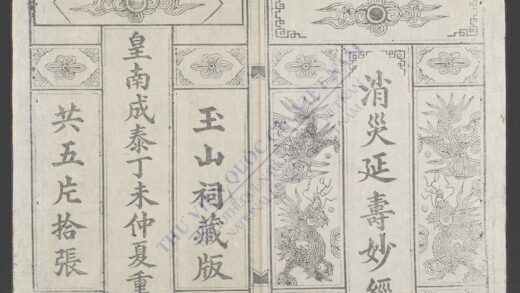 消災延壽妙經
玉山祠藏版
皇南成泰丁未仲夏重
共五片拾張
THƯ VIỆN QUỐC GIA VIỆT NAM